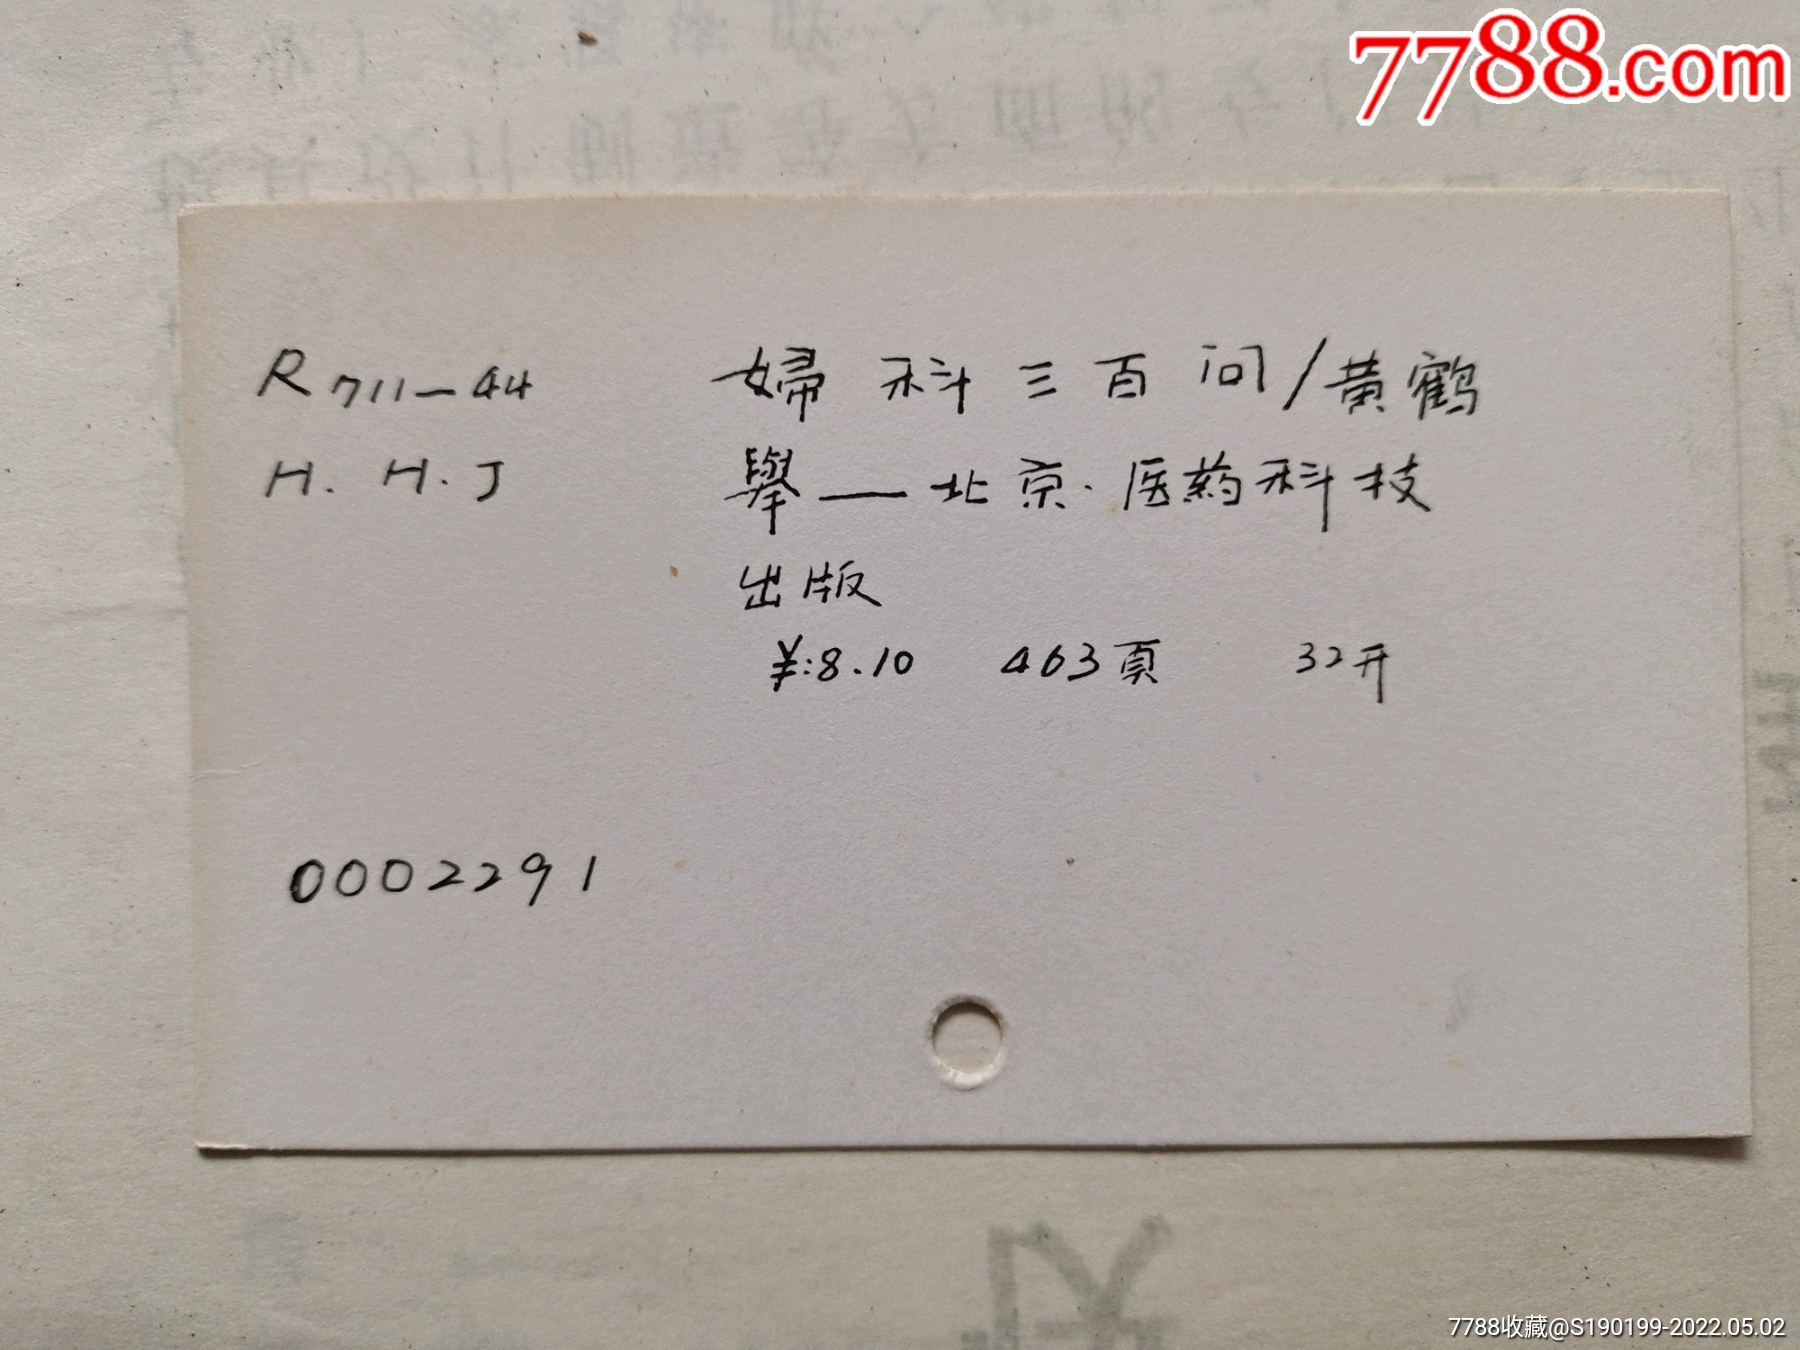 7788.com
R711-44 婦科三百问/黄鹤
H.H.J 舉—北京·医药科技
出版
¥:8.10 463頁 32开
0002291
7788收藏@S190199-2022.05.02